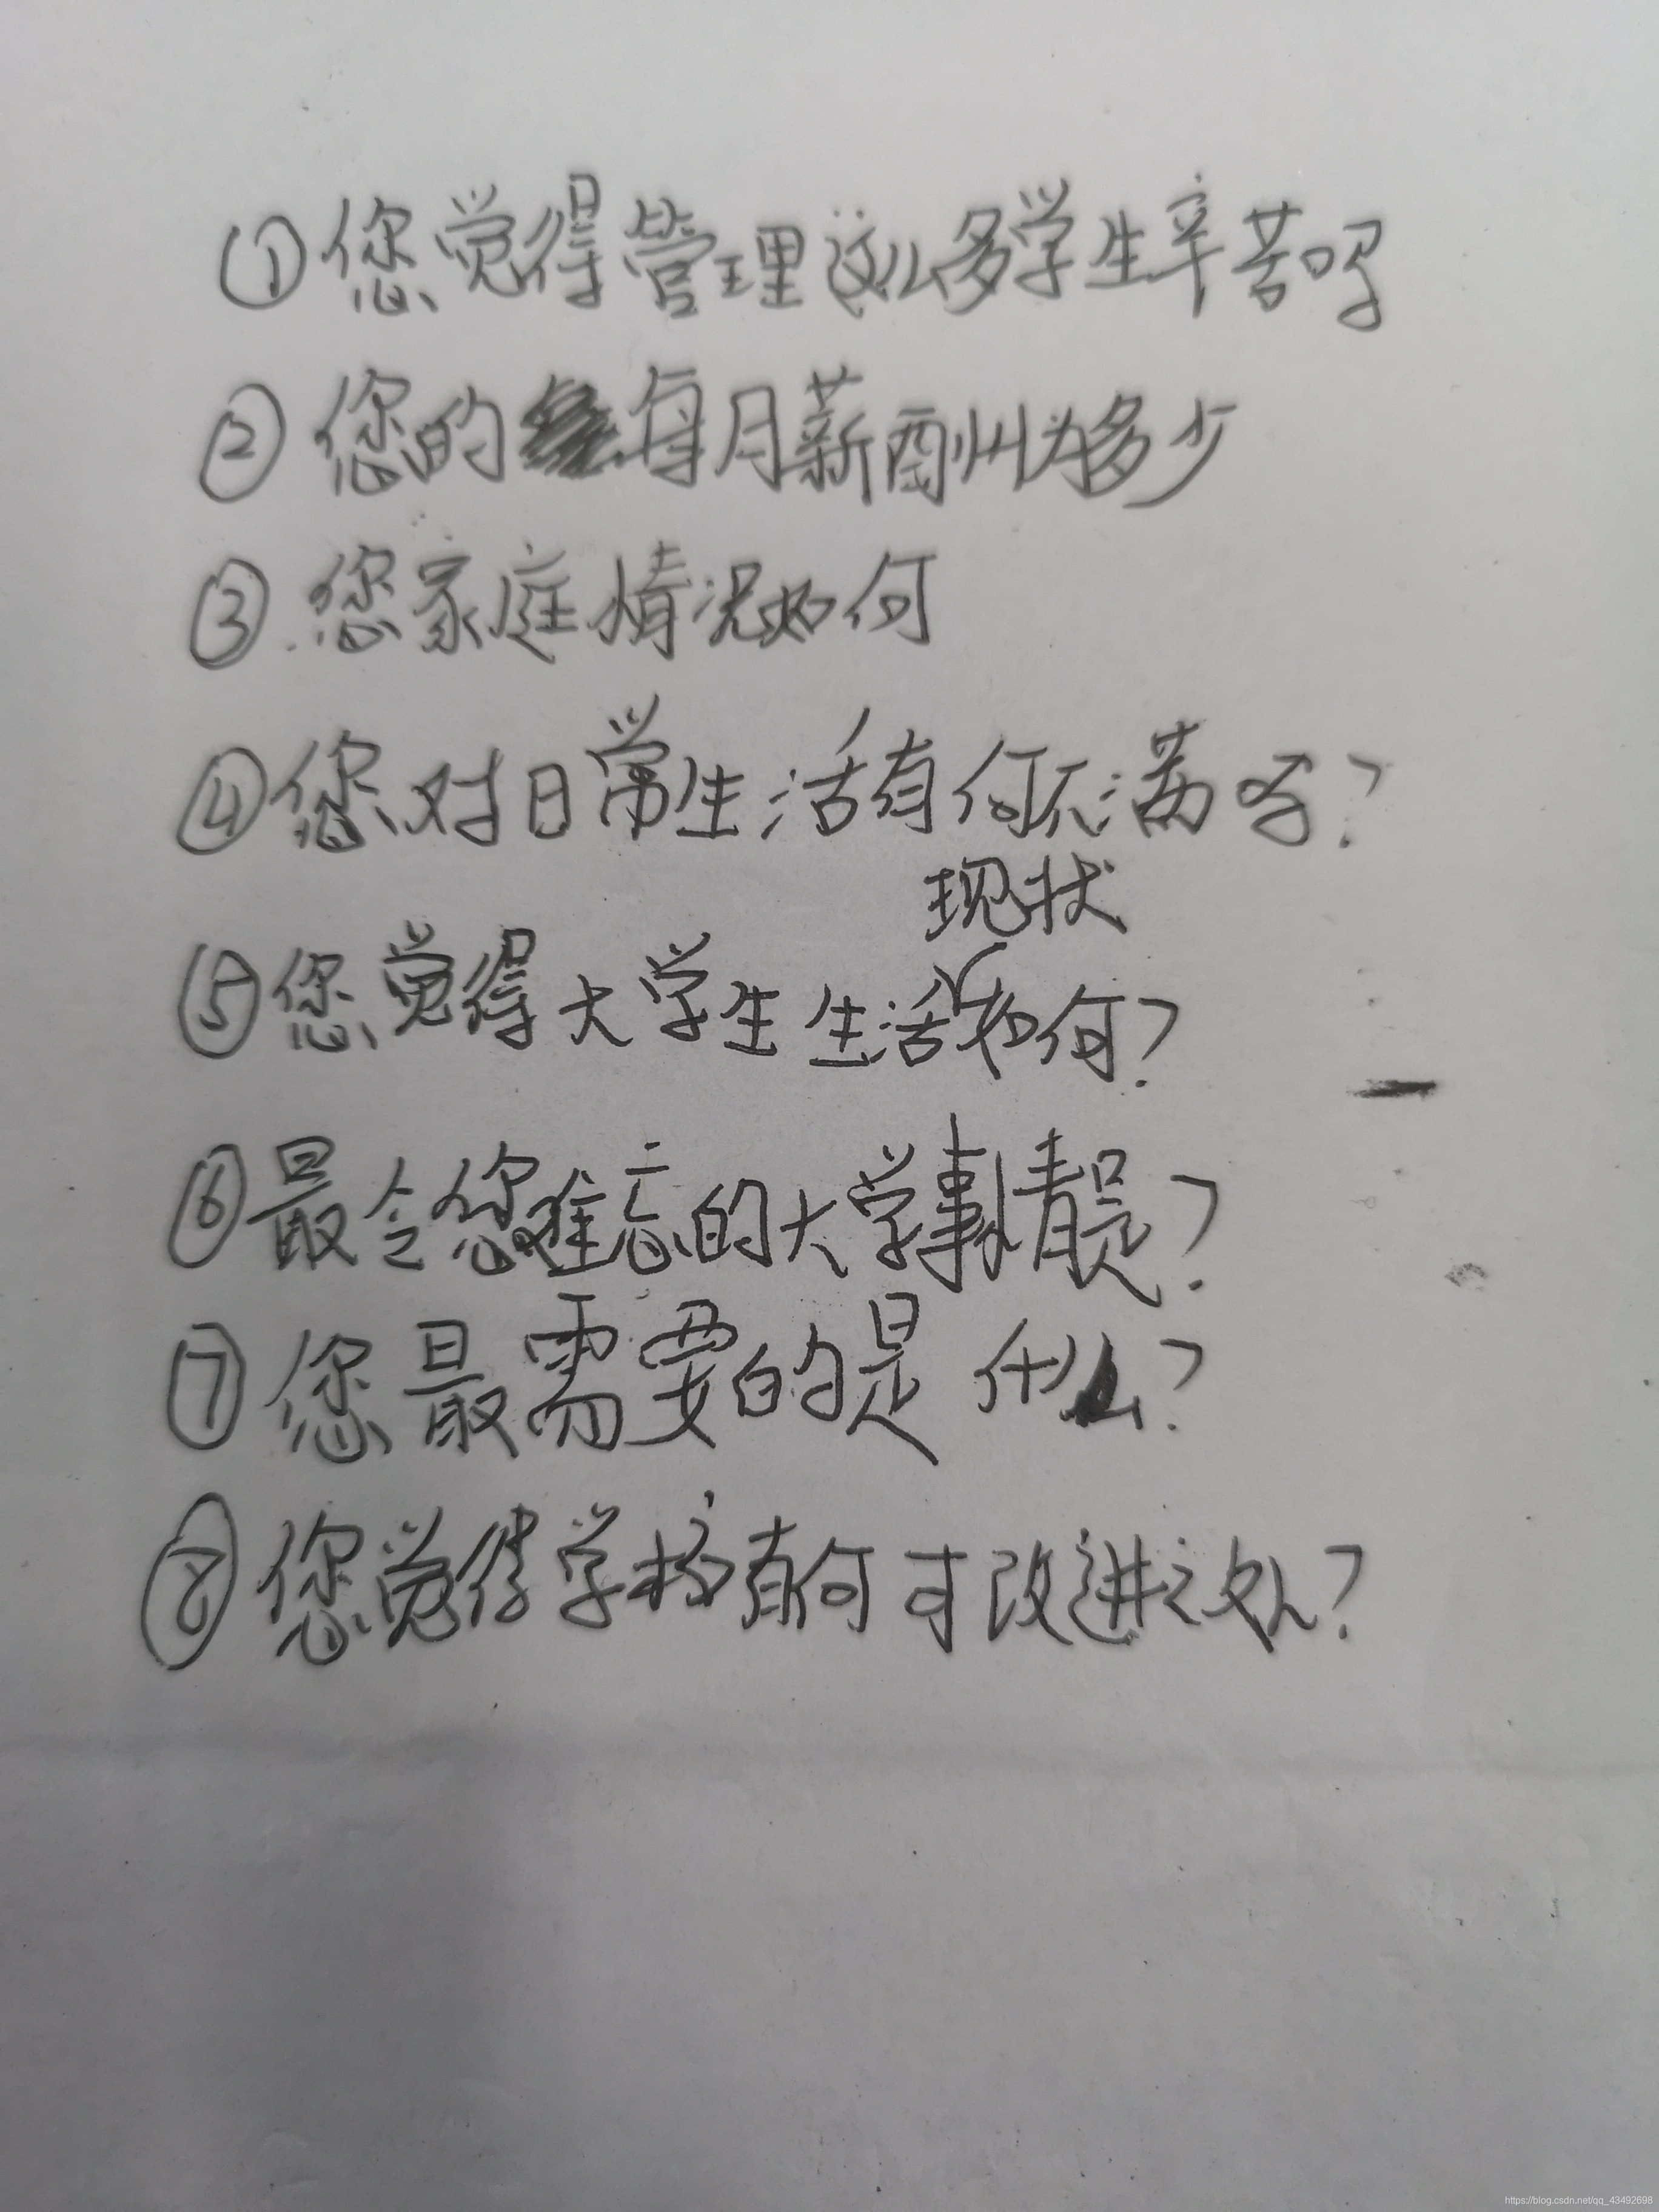 ①您觉得管理这么多学生辛苦吗
②您的每月薪酬为多少
③.您家庭情况如何
④您对日常生活有何不满吗?
现状
⑤您觉得大学生生活如何?
⑥最令您难忘的大学事情是?
⑦您最需要的是什么?
⑧您觉得学校有何可改进之处?
https://blog.csdn.net/qq_43492698